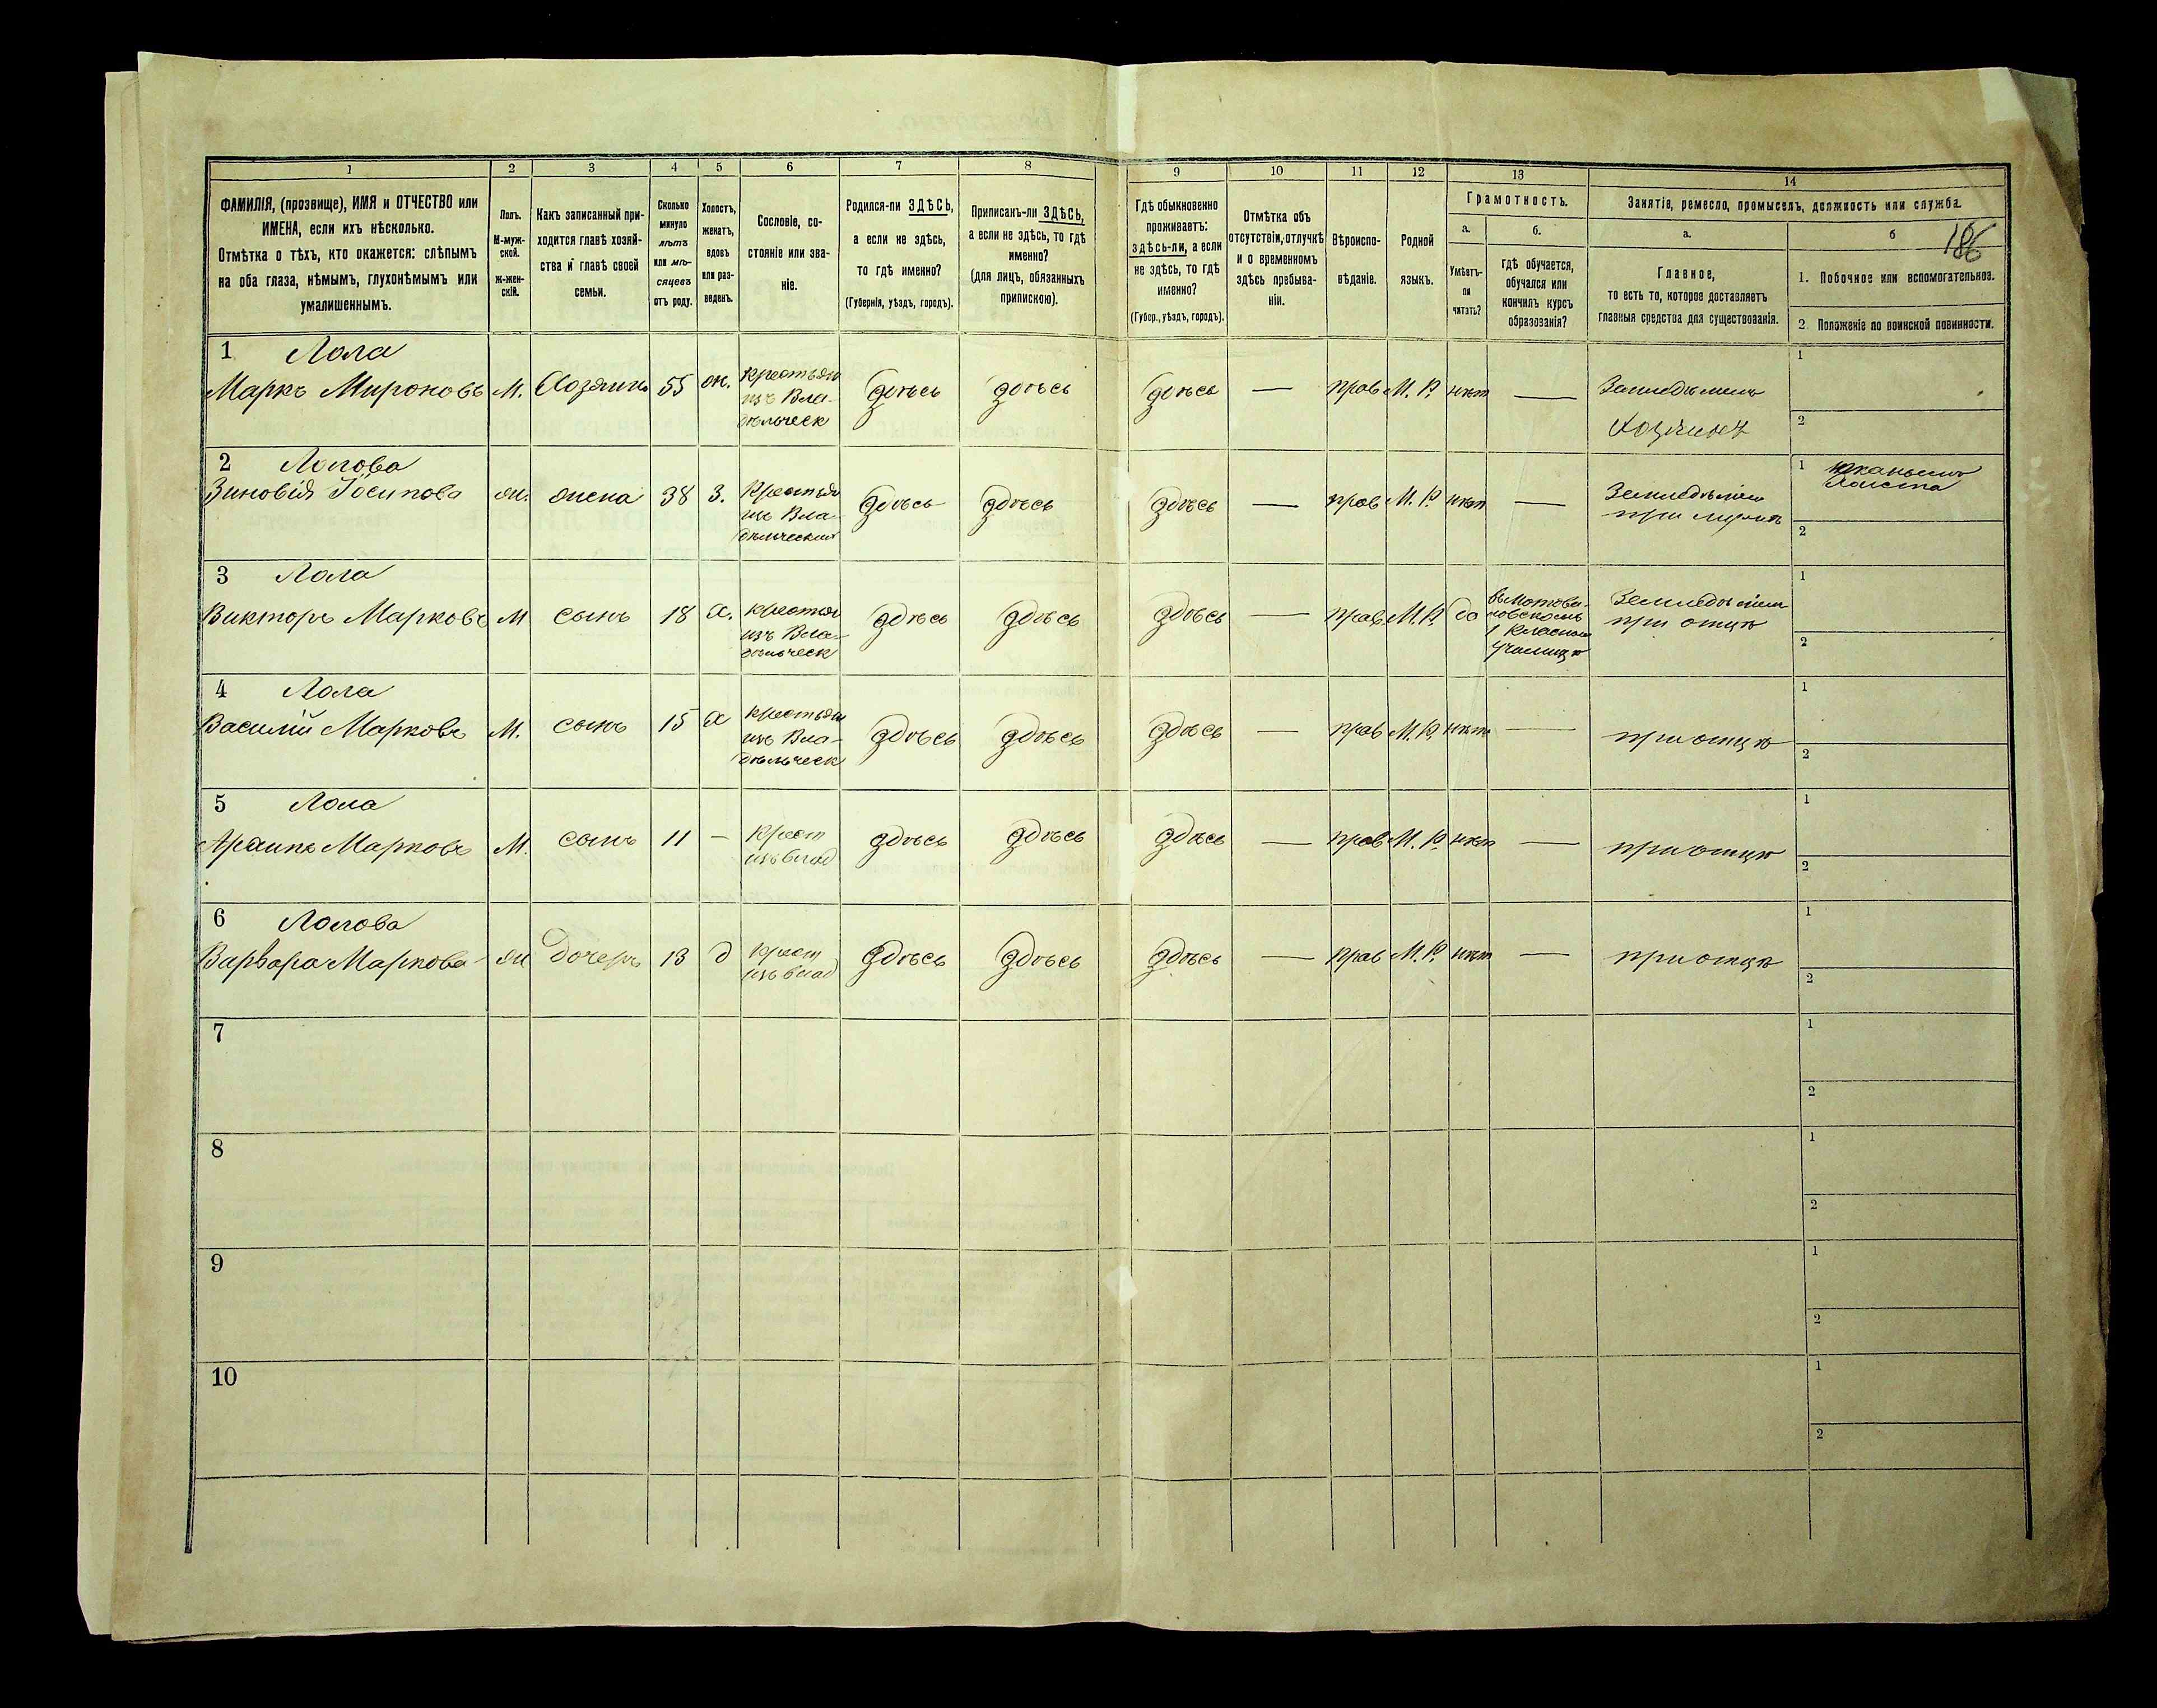 1 2 3 4 5 6 7 8 9 10 11 12 13 14
ФАМИЛІЯ, (прозвище), ИМЯ и ОТЧЕСТВО или
ИМЕНА, если ихъ нѣсколько.
Отмѣтка о тѣхъ, кто окажется: слѣпымъ
на оба глаза, нѣмымъ, глухонѣмымъ или
умалишеннымъ.
Полъ.
М-муж-
ской.
ж-жен-
скій.
Какъ записанный при-
ходится главѣ хозяй-
ства и главѣ своей
семьи.
Сколько
минуло
лѣтъ
или мѣ-
сяцевъ
отъ роду.
Холостъ,
женатъ,
вдовъ
или раз-
веденъ.
Сословіе, со-
стояніе или зва-
ніе.
Родился-ли ЗДѢСЬ,
а если не здѣсь,
то гдѣ именно?
(Губернія, уѣздъ, городъ).
Приписанъ-ли ЗДѢСЬ,
а если не здѣсь, то гдѣ
именно?
(для лицъ, обязанныхъ
припискою).
Гдѣ обыкновенно
проживаетъ:
здѣсь-ли, а если
не здѣсь, то гдѣ
именно?
(Губер., уѣздъ, городъ).
Отмѣтка объ
отсутствіи, отлучкѣ
и о временномъ
здѣсь пребыва-
ніи.
Вѣроиспо-
вѣданіе.
Родной
языкъ.
Грамотность.
а.
Умѣетъ-
ли
читать?
б.
гдѣ обучается,
обучался или
кончилъ курсъ
образованія?
Занятіе, ремесло, промыселъ, должность или служба.
а.
Главное,
то есть то, которое доставляетъ
главныя средства для существованія.
б
186
1. Побочное или вспомогательное.
2. Положеніе по воинской повинности.
1 Лола
Маркъ Мироновъ М. Хозяинъ 55 ж. Крестьян здѣсь здѣсь здѣсь — прав М. Р. нѣт — Земледѣліе 1
изъ Вла-
дѣльческ
Хозяинъ 2
2 Лолова
Зиновія Іосипова ж. жена 38 З. Крестьян здѣсь здѣсь здѣсь — прав М. Р. нѣт — Земледѣліе 1
изъ Вла-
дѣльческих
при мужѣ 2
3 Лола
Викторъ Марковъ М сынъ 18 х. крестьян здѣсь здѣсь здѣсь — прав М. Р. да Земледѣліе 1
изъ Вла-
дѣльческ
1 класном
училищѣ
при отцѣ 2
4 Лола
Василій Марковъ М. сынъ 15 х крестьян здѣсь здѣсь здѣсь — прав М. Р. нѣт — при отцѣ 1
изъ Вла-
дѣльческ
2
5 Лола
Марковъ М. сынъ 11 — Крест здѣсь здѣсь здѣсь — прав М. Р. нѣт — при отцѣ 1
изъ влад
2
6 Лолова
Варвара Маркова ж дочерь 13 д Крест здѣсь здѣсь здѣсь — прав М. Р. нѣт — при отцѣ 1
изъ влад
2
7 1
2
8 1
2
9 1
2
10 1
2